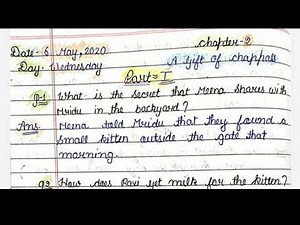 Date- 6 May, 2020 Chapter-2
Day- Wednesday A Gift of Chappals
Part-I
Q-1 What is the secret that Meena shares with
Mridu in the backyard?
Ans. Meena told Mridu that they found a
small kitten outside the gate that
morning.
Q2 How does Ravi get milk for the kitten?